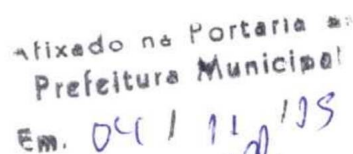 Afixado na Portaria a:
Prefeitura Municipal
Em. 04 / 11 /